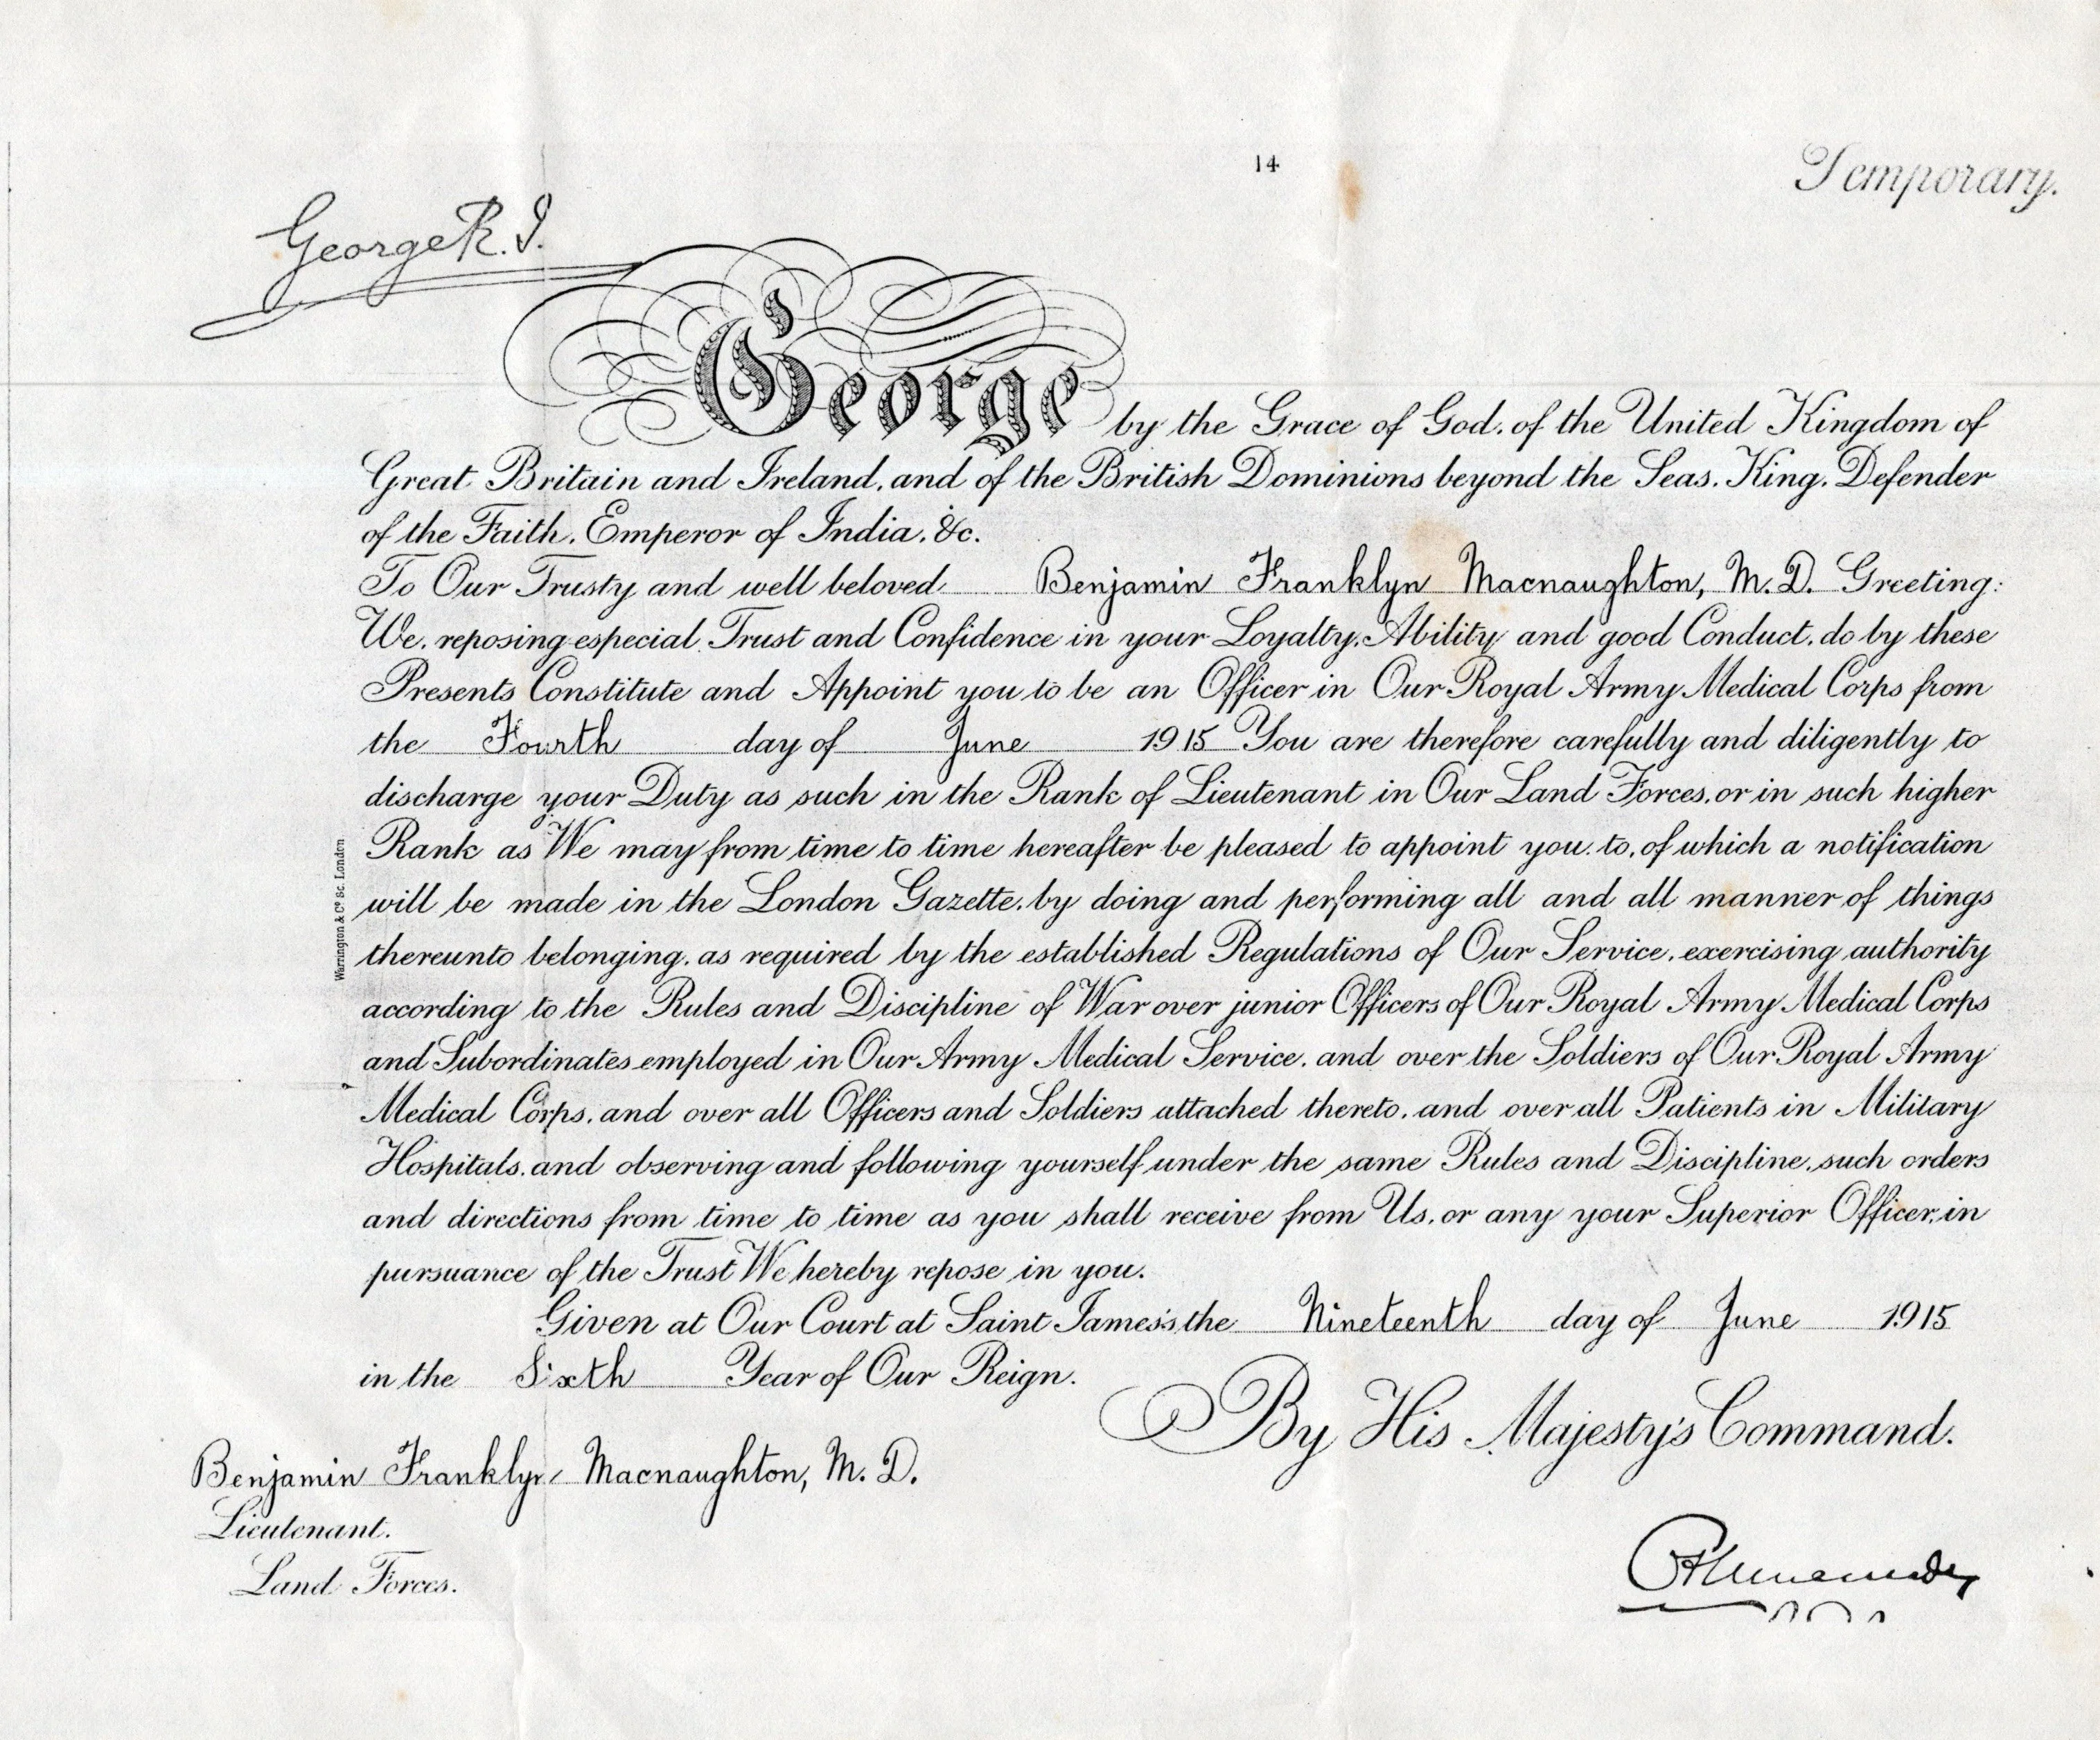 14
Temporary.
George R. I.
George by the Grace of God, of the United Kingdom of
Great Britain and Ireland, and of the British Dominions beyond the Seas, King, Defender
of the Faith, Emperor of India, &c.
To Our Trusty and well beloved Benjamin Franklyn Macnaughton, M. D. Greeting:
We, reposing especial Trust and Confidence in your Loyalty, Ability and good Conduct, do by these
Presents Constitute and Appoint you to be an Officer in Our Royal Army Medical Corps from
the Fourth day of June 1915 You are therefore carefully and diligently to
discharge your Duty as such in the Rank of Lieutenant in Our Land Forces, or in such higher
Rank as We may from time to time hereafter be pleased to appoint you to, of which a notification
will be made in the London Gazette, by doing and performing all and all manner of things
thereunto belonging, as required by the established Regulations of Our Service, exercising authority
according to the Rules and Discipline of War over junior Officers of Our Royal Army Medical Corps
and Subordinates employed in Our Army Medical Service, and over the Soldiers of Our Royal Army
Medical Corps, and over all Officers and Soldiers attached thereto, and over all Patients in Military
Hospitals, and observing and following yourself under the same Rules and Discipline, such orders
and directions from time to time as you shall receive from Us, or any your Superior Officer, in
pursuance of the Trust We hereby repose in you.
Given at Our Court at Saint James's the Nineteenth day of June 1915
in the Sixth Year of Our Reign.
By His Majesty's Command.
Benjamin Franklyn Macnaughton, M. D.
Lieutenant.
Land Forces.
Warrington & Co. Sc. London